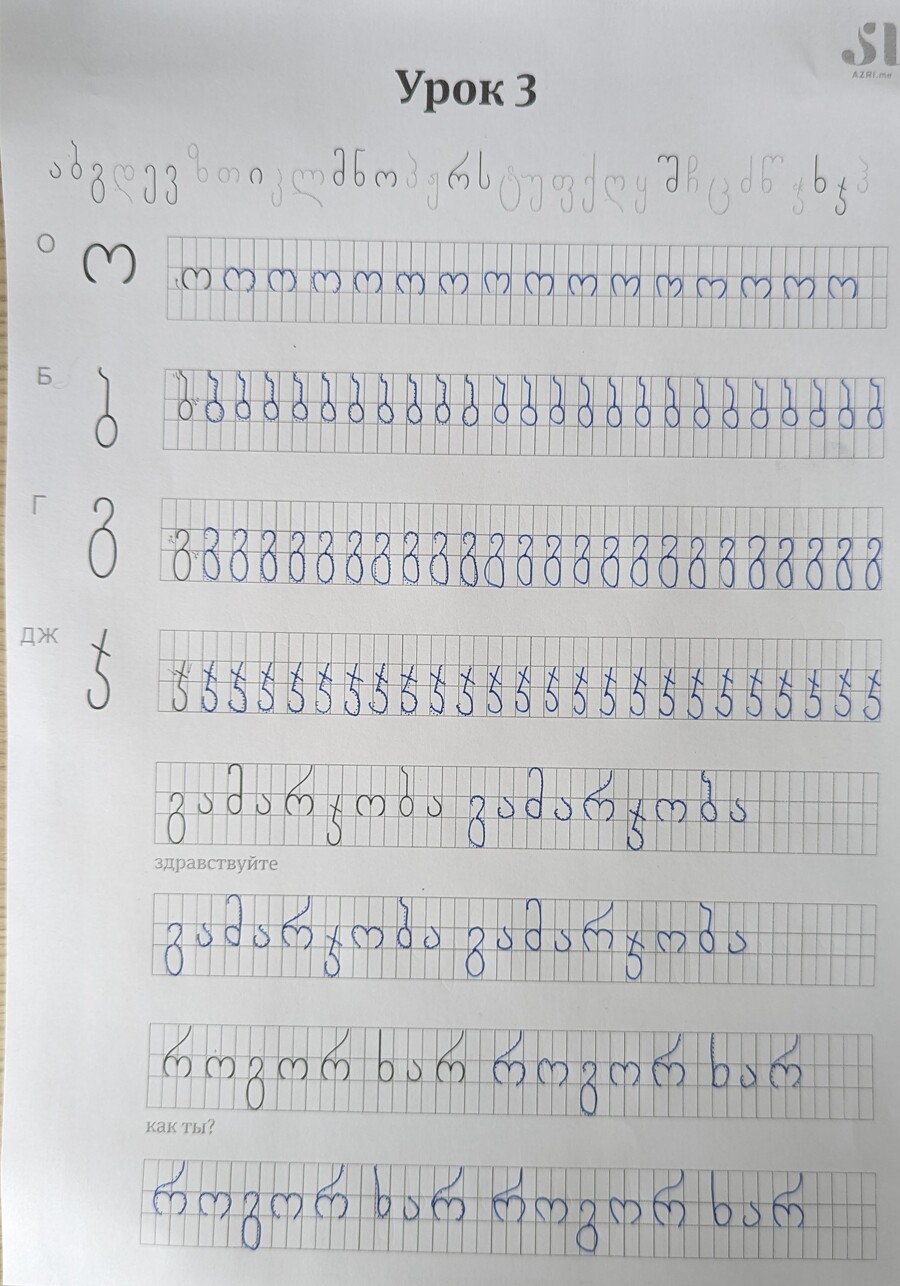 AZRI.me
Урок 3
ა ბ გ დ ე ვ ზ თ ი კ ლ მ ნ ო პ ჟ რ ს ტ უ ფ ქ ღ ყ შ ჩ ც ძ წ ჭ ხ ჯ ჰ
О ო ო ო ო ო ო ო ო ო ო ო ო ო ო ო ო ო
Б ბ ბ ბ ბ ბ ბ ბ ბ ბ ბ ბ ბ ბ ბ ბ ბ ბ ბ ბ ბ ბ ბ ბ ბ ბ ბ
Г გ გ გ გ გ გ გ გ გ გ გ გ გ გ გ გ გ გ გ გ გ გ გ გ გ გ
ДЖ ჯ ჯ ჯ ჯ ჯ ჯ ჯ ჯ ჯ ჯ ჯ ჯ ჯ ჯ ჯ ჯ ჯ ჯ ჯ ჯ ჯ ჯ ჯ ჯ ჯ ჯ
გამარჯობა გამარჯობა
здравствуйте
გამარჯობა გამარჯობა
როგორ ხარ როგორ ხარ
как ты?
როგორ ხარ როგორ ხარ